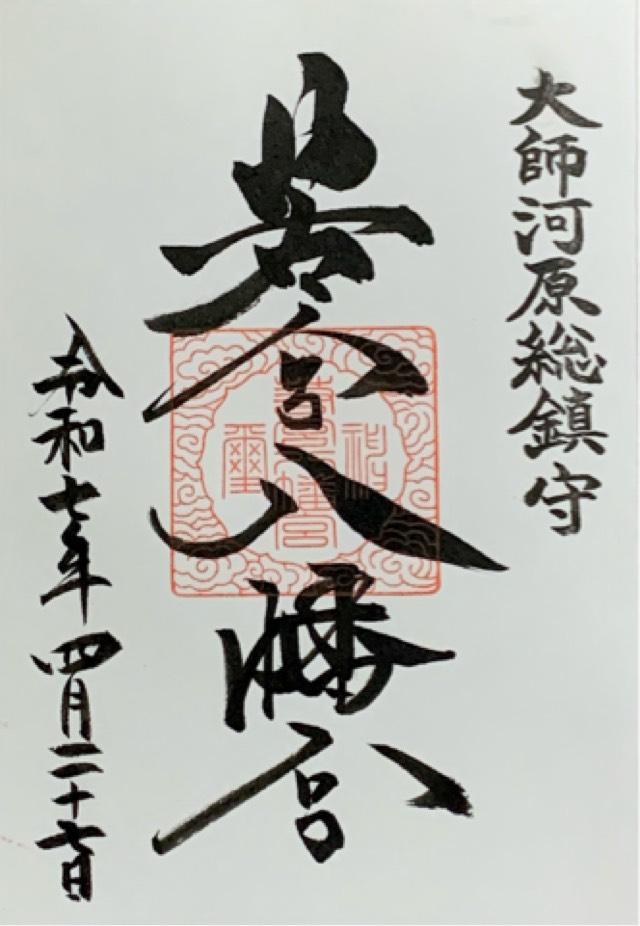 大師河原総鎮守
若宮八幡宮
令和七年四月二十七日